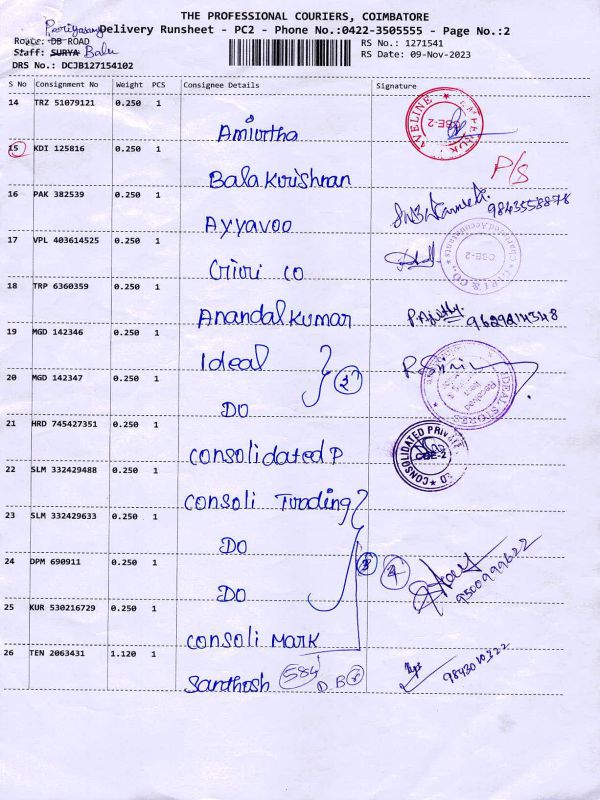 THE PROFESSIONAL COURIERS, COIMBATORE
Delivery Runsheet - PC2 - Phone No.:0422-3505555 - Page No.:2
Route: DB ROAD
RS No.: 1271541
Staff: SURYA Balu
RS Date: 09-Nov-2023
DRS No.: DCJB127154102
S No Consignment No Weight PCS Consignee Details Signature
14 TRZ 51079121 0.250 1 Amirtha
CBE-2
15 KDI 125816 0.250 1 Bala Krishnan P/S
16 PAK 382539 0.250 1 Ayyavoo 9843558878
17 VPL 403614525 0.250 1 Giri co
Chartered Accountants CBE-2
18 TRP 6360359 0.250 1 Anandal Kumar 9629214348
19 MGD 142346 0.250 1 Ideal
20 MGD 142347 0.250 1 DO 2
IDEAL STORES
Received
21 HRD 745427351 0.250 1 Consolidated P
CONSOLIDATED PRIVATE
CBE-2
22 SLM 332429488 0.250 1 Consoli Trading
23 SLM 332429633 0.250 1 DO
24 DPM 690911 0.250 1 DO 4 9500999622
25 KUR 530216729 0.250 1 Consoli MARK
26 TEN 2063431 1.120 1 Santhosh 584 DB 9843010322